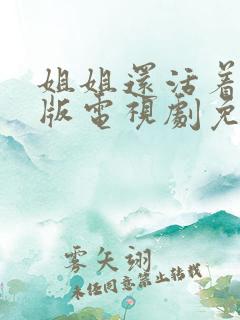 姐姐還活着
版電視劇免
雾矢翊
未经同意禁止转载